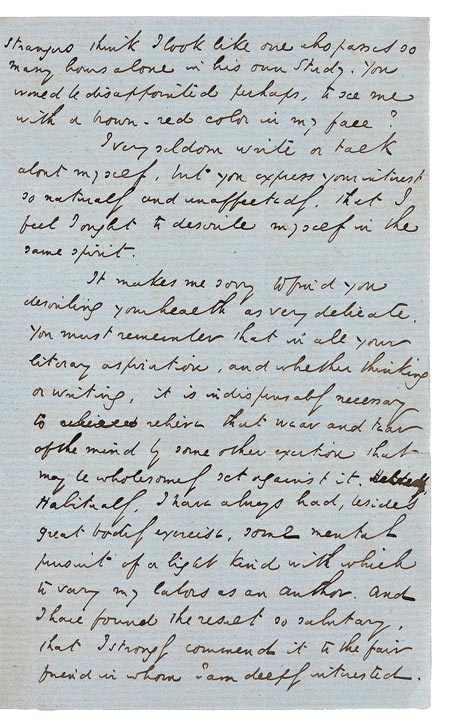 strangers think I look like one who passes so
many hours alone in his own Study. You
would be disappointed perhaps, to see me
with a brown-red color in my face?
I very seldom write or talk
about myself, but you express your interest
so naturally and unaffectedly, that I
feel I ought to describe myself in the
same spirit.
It makes me sorry to find you
describing your health as very delicate.
You must remember that in all your
literary aspiration, and whether thinking
or writing, it is indispensably necessary
to relieve that wear and tear
of the mind by some other exertion that
may be wholesomely set against it.
Habitually, I have always had, besides
great bodily exercise, some mental
pursuit of a light kind with which
to vary my labors as an Author. And
I have found the result so salutary,
that I strongly commend it to the fair
friend in whom I am deeply interested.